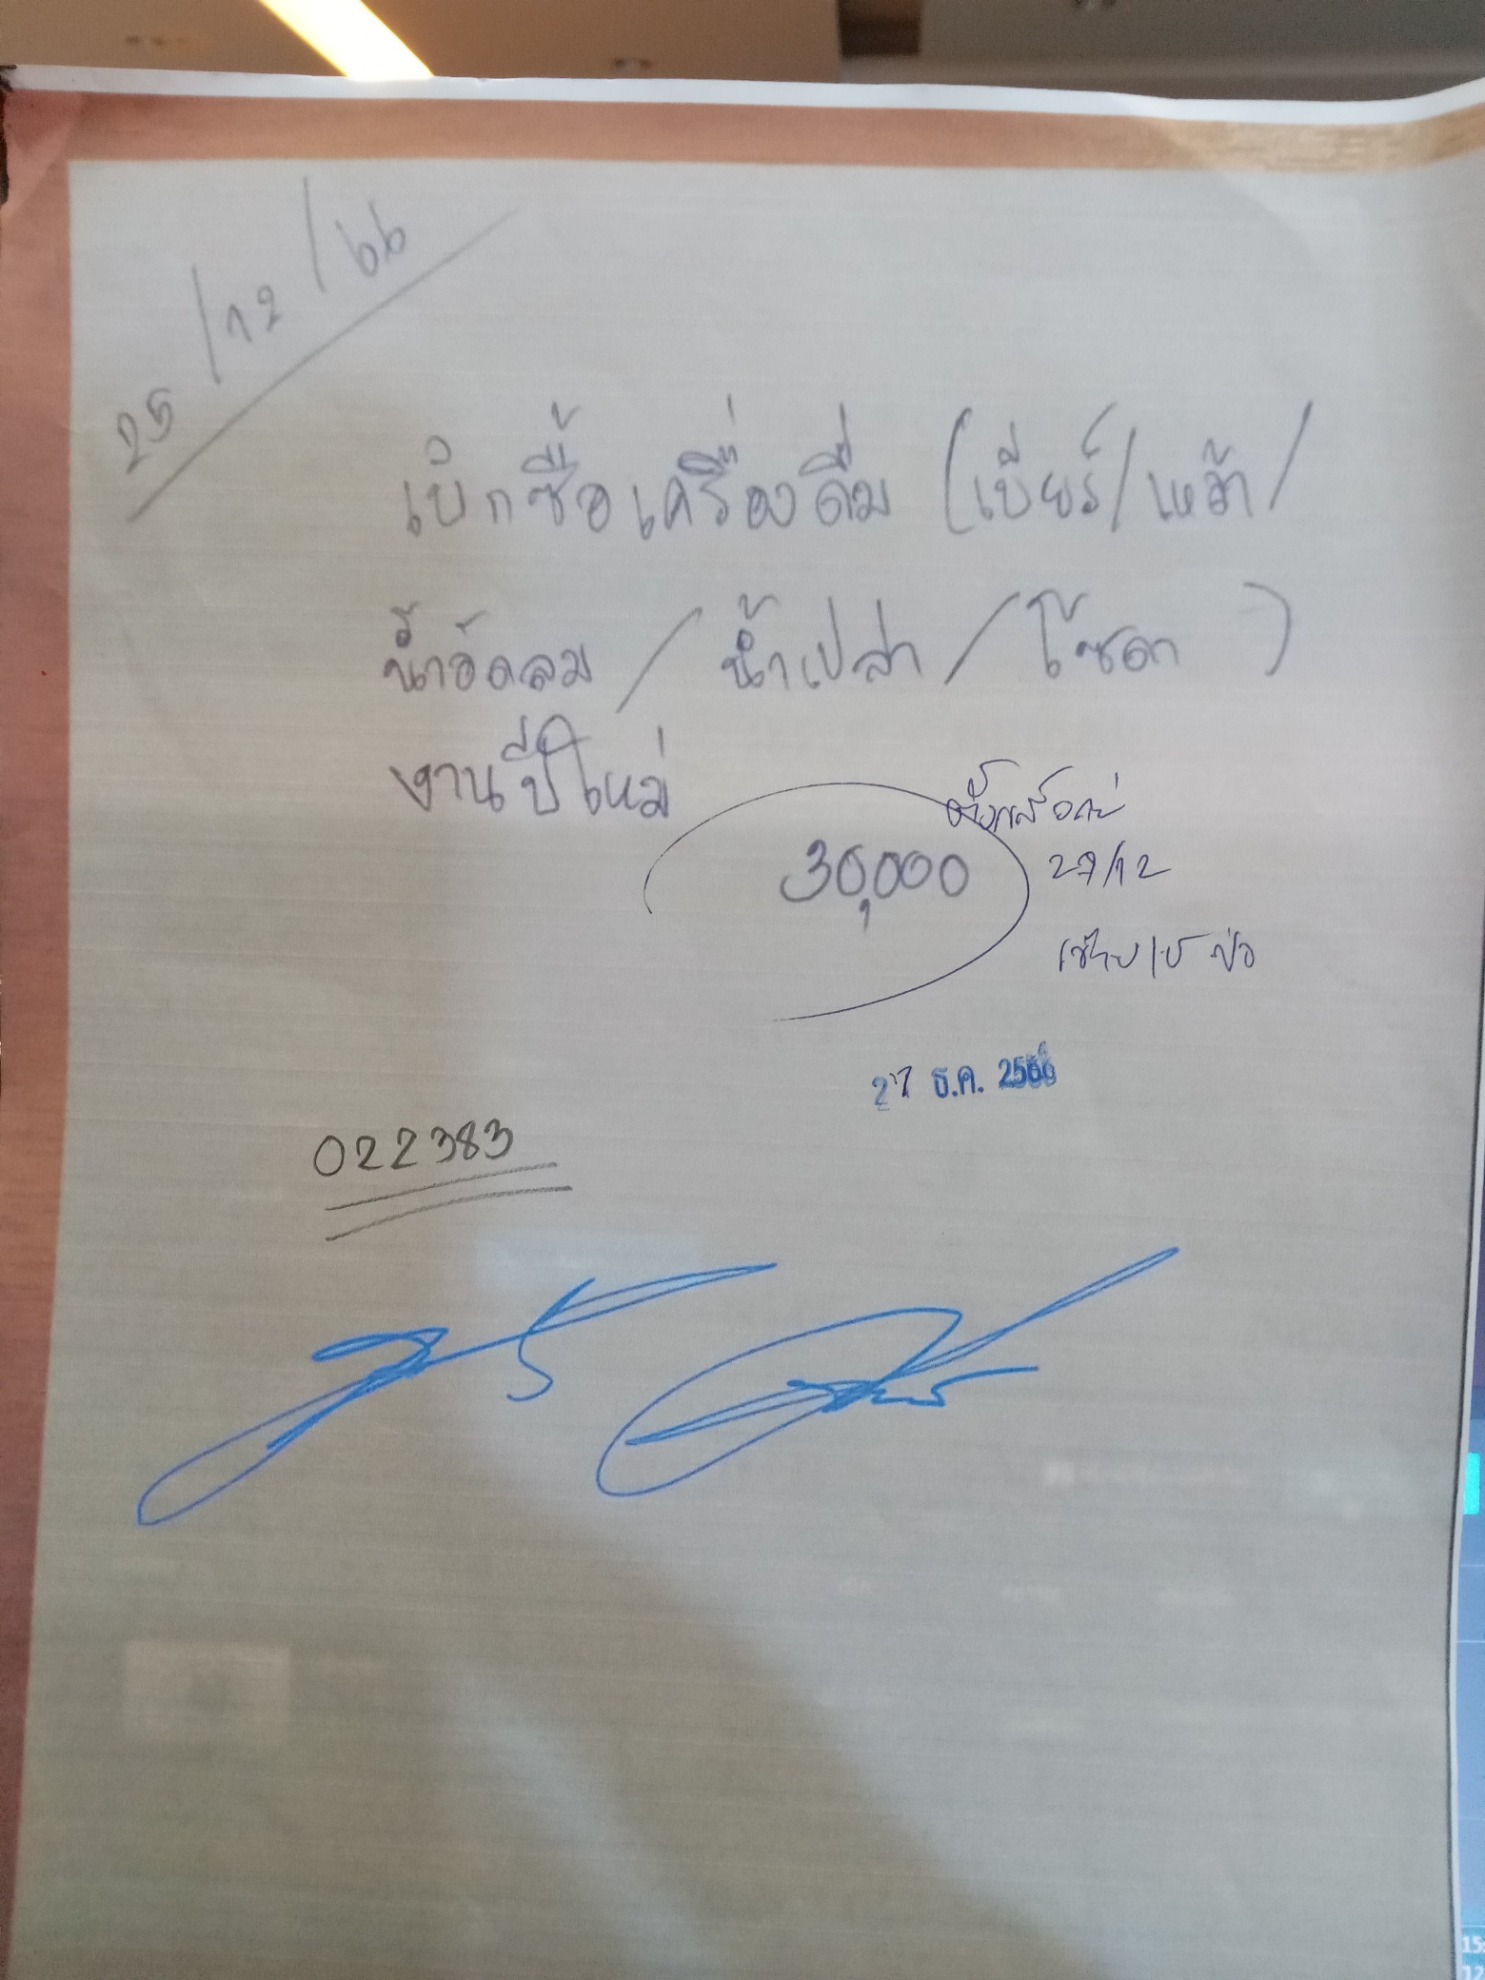 25/12/66
เบิกซื้อเครื่องดื่ม (เบียร์/เหล้า/
น้ำอัดลม / น้ำเปล่า / โซดา )
งานปีใหม่
30,000
27/12
27 ธ.ค. 2566
022383